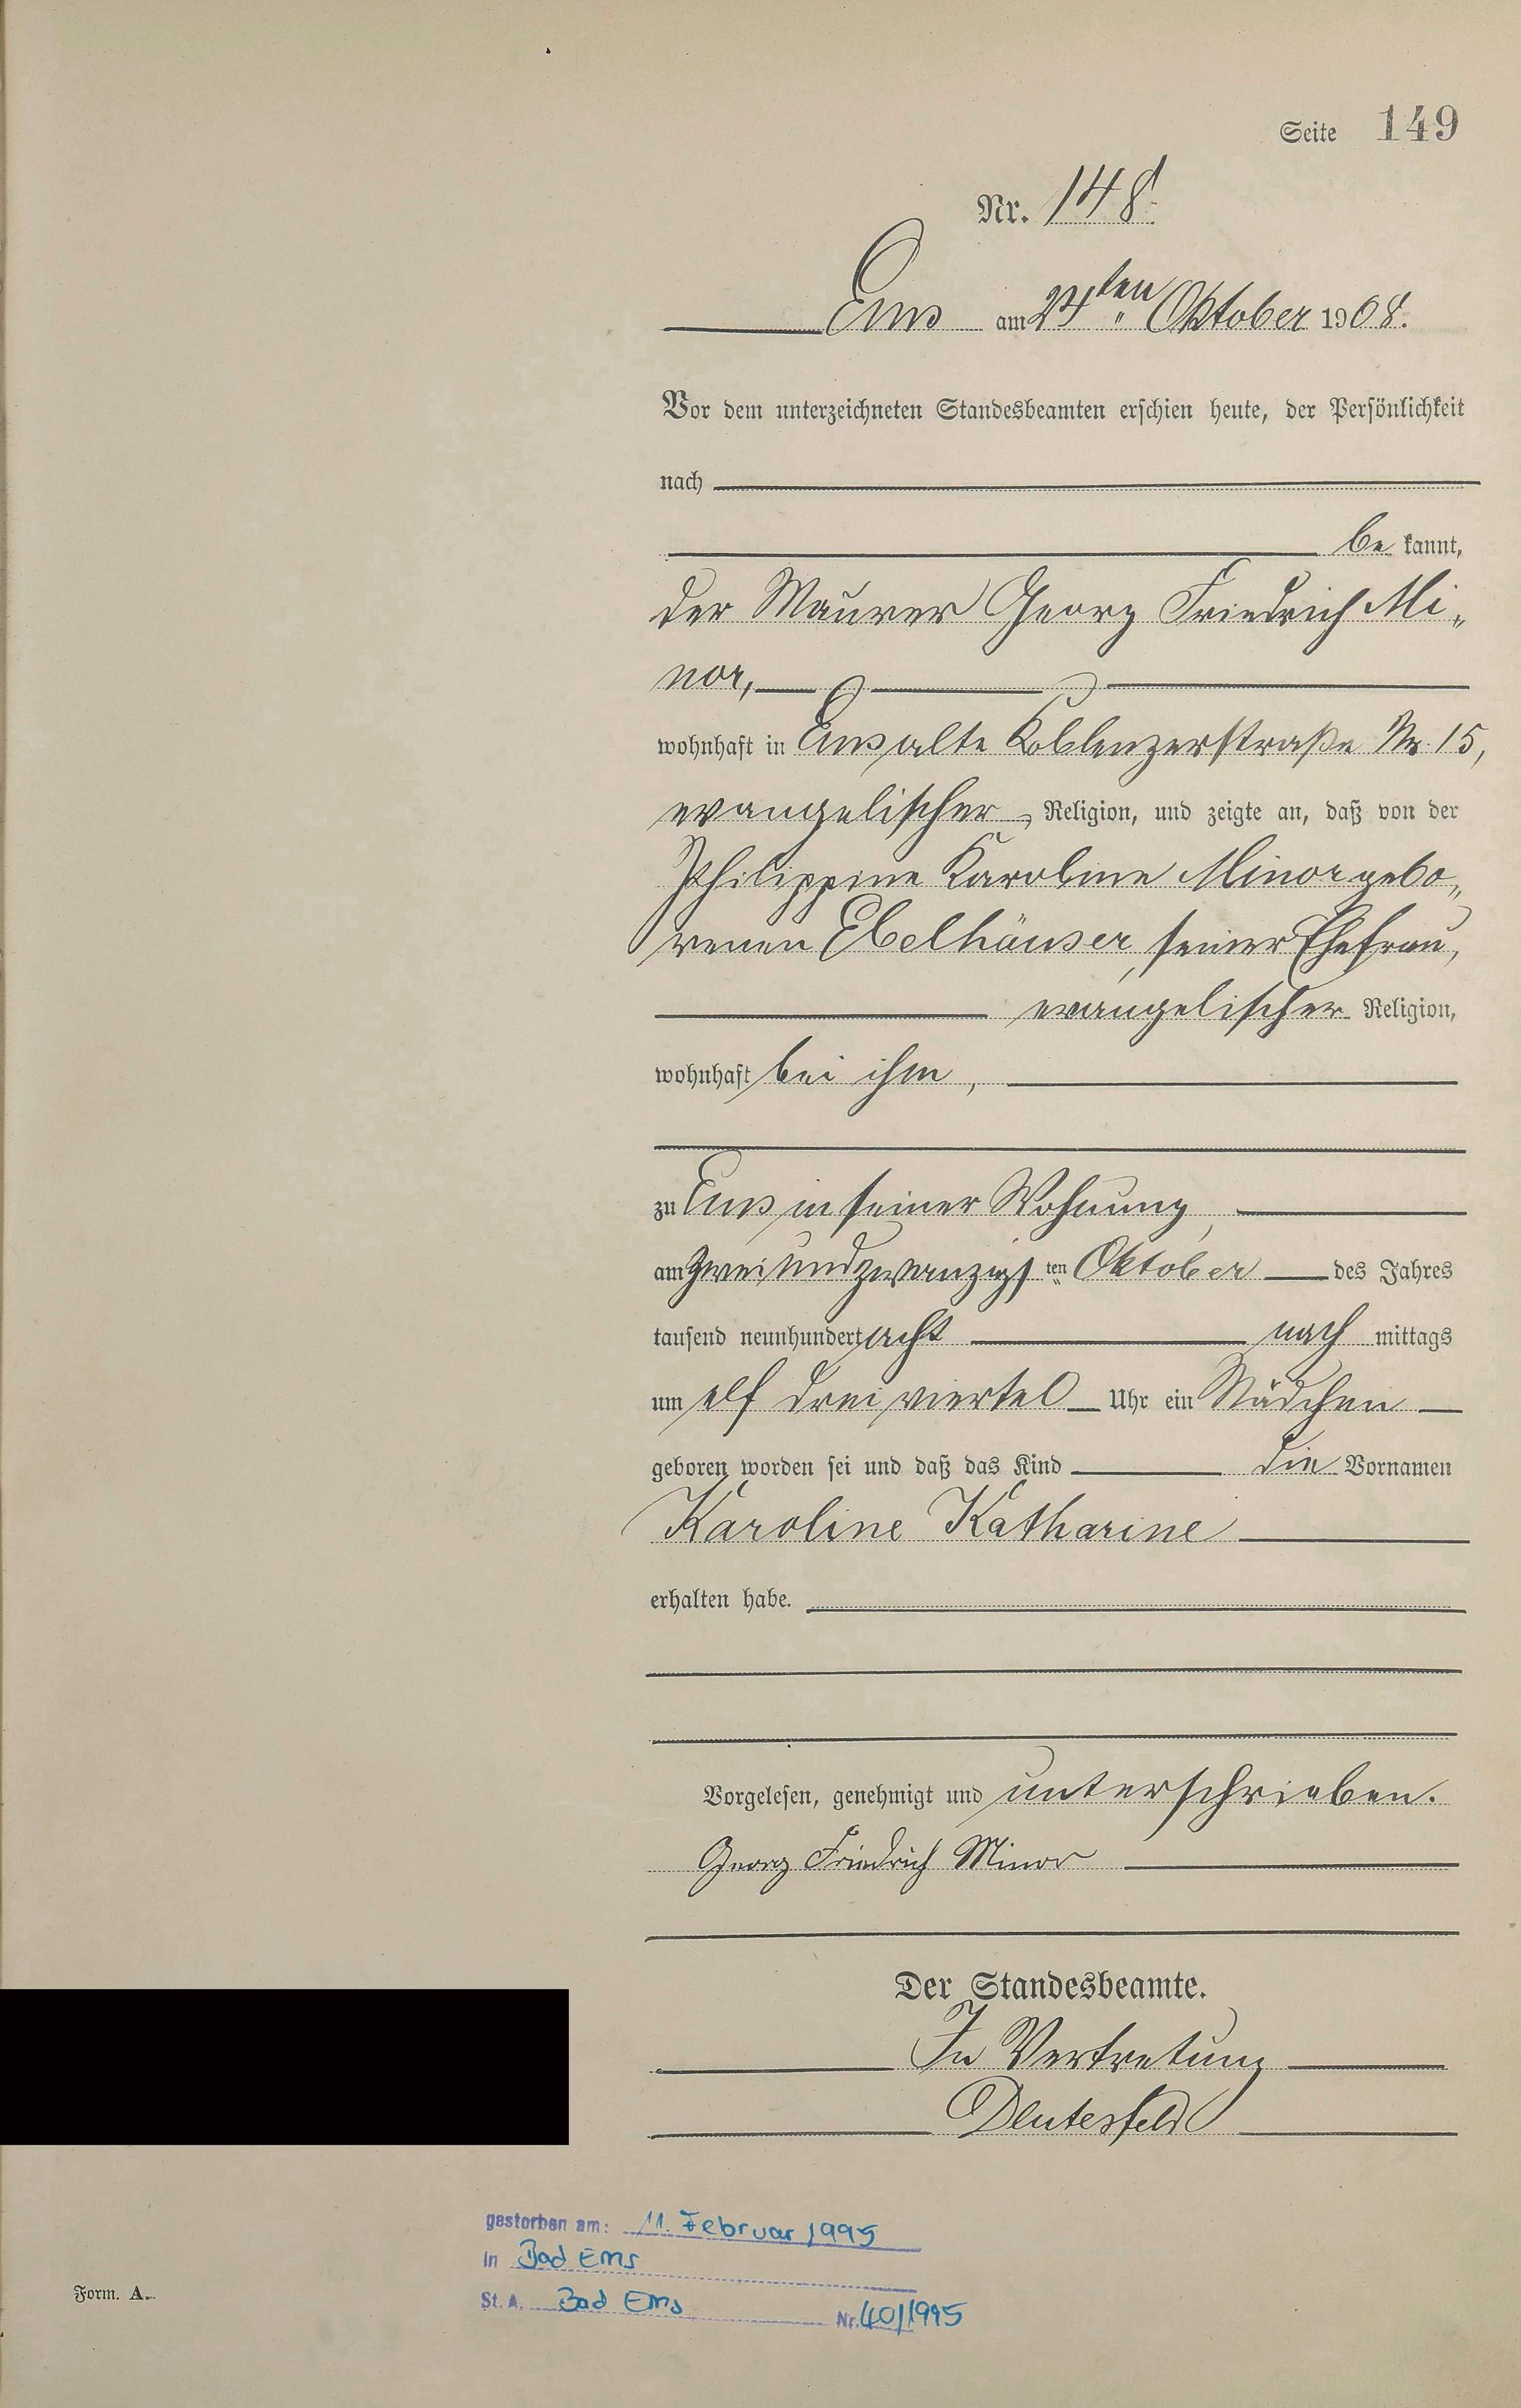 Seite 149
Nr. 148.
Ems am 24ten Oktober 1908.
Vor dem unterzeichneten Standesbeamten erschien heute, der Persönlichkeit
nach
be kannt,
der Maurer Georg Friedrich Mi„
nor,
wohnhaft in Ems alte Koblenzerstraße Nr. 15,
evangelischer Religion, und zeigte an, daß von der
Philippine Karoline Minor gebo„
renen Ebelhäuser, seiner Ehefrau,
evangelischer Religion,
wohnhaft bei ihm,
zu Ems in seiner Wohnung,
am zweiundzwanzigs ten Oktober des Jahres
tausend neunhundert acht nach mittags
um elf dreiviertel Uhr ein Mädchen
geboren worden sei und daß das Kind die Vornamen
Karoline Katharine
erhalten habe.
Vorgelesen, genehmigt und unterschrieben.
Georg Friedrich Minor
Der Standesbeamte.
In Vertretung
gestorben am: 11. Februar 1995
in Bad Ems
St. A. Bad Ems Nr. 40/1995
Form. A.